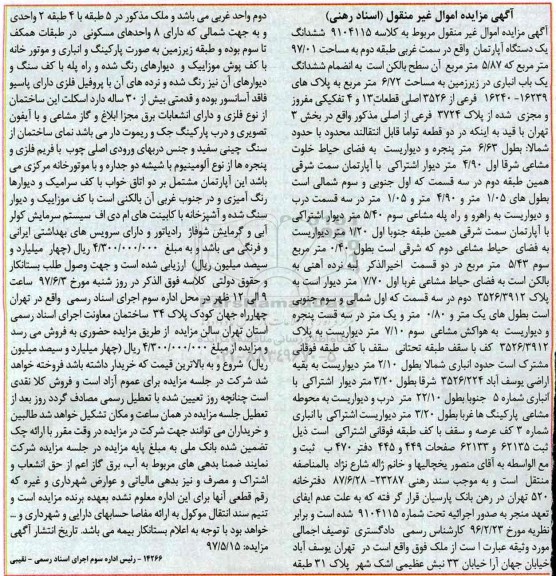 آگهی مزایده اموال غیر منقول (اسناد رهنی)
آگهی مزایده اموال غیر منقول مربوط به کلاسه ۹۱۰۴۱۱۵ ششدانگ
یک دستگاه آپارتمان واقع در سمت غربی طبقه دوم به مساحت ۹۷/۰۱
متر مربع که ۵/۸۷ متر مربع آن سطح بالکن است به انضمام ششدانگ
یک باب انباری در زیرزمین به مساحت ۶/۷۲ متر مربع به پلاک های
۱۶۲۳۹- ۱۶۲۴۰ فرعی از ۳۵۲۶ اصلی قطعات۱۳ و ۴ تفکیکی مفروز
و مجزی شده از پلاک ۳۷۲۴ فرعی از اصلی مذکور واقع در بخش ۳
تهران با قید به اینکه در دو قطعه تواما قابل انتقالند محدود با حدود
شمالا: بطول ۶/۶۳ متر پنجره و دیواریست به فضای حیاط خلوت
مشاعی شرقا اول ۴/۹۰ متر دیوار اشتراکی با آپارتمان سمت شرقی
همین طبقه دوم در سه قسمت که اول جنوبی و سوم شمالی است
بطول های ۱/۰۵ متر و ۴/۹۰ متر و ۱/۰۵ متر در سه قسمت درب
و دیواریست به راهرو و راه پله مشاعی سوم ۵/۴۰ متر دیوار اشتراکی
با آپارتمان سمت شرقی همین طبقه جنوبا اول ۱/۲۰ متر دیواریست
به فضای حیاط مشاعی دوم که شرقی است بطول ۰/۴۰ متر مربع
سوم ۵/۴۳ متر مربع در دو قسمت اخیرالذکر لبه نرده آهنی به
بالکن است به فضای حیاط مشاعی غربا اول ۷/۷۰ متر دیوار است به
پلاک ۳۵۲۶/۳۹۱۲ دوم در سه قسمت که اول شمالی و سوم جنوبی
است بطول های یک متر و ۰/۸۰ متر و یک متر در سه قست پنجره
و دیواریست به هواکش مشاعی سوم ۷/۱۰ متر دیواریست به پلاک
۳۵۲۶/۳۹۱۲ کف با سقف طبقه تحتانی سقف با کف طبقه فوقانی
مشترک است حدود انباری شمالا بطول ۲/۱۰ متر دیواریست به بقیه
اراضی یوسف آباد ۳۵۲۶/۲۲۴ شرقا بطول ۳/۲۰ متر دیوار اشتراکی با
انباری شماره ۵ جنوبا بطول ۲/۱۰ متر درب و دیواریست به محوطه
مشاعی پارکینگ ها غربا بطول ۳/۲۰ متر دیواریست اشتراکی با انباری
شماره ۳ کف عرصه و سقف با کف طبقه فوقانی اشتراکی است ذیل
ثبت ۶۲۱۳۵ و ۶۲۱۳۳ صفحات ۴۴۹ و ۴۴۵ دفتر ۴۷۰ ب ثبت و
مع الواسطه به آقای منصور یخچالیها و خانم ژاله شارع نژاد بالمناصفه
منتقل است و به موجب سند رهنی ۲۳۲۸۷- ۸۷/۶/۲۸ دفترخانه
۵۲۰ تهران در رهن بانک پارسیان قرار گر فته که به علت عدم ایفای
تعهد منجر به صدور اجرائیه تحت شماره ۹۱۰۴۱۱۵ شده است و برابر
نظریه مورخ ۹۶/۲/۲۳ کارشناس رسمی دادگستری توصیف اجمالی
مورد وثیقه عبارت ا ست از ملک فوق واقع است در تهران یوسف آباد
خیابان جهان آرا خیابان ۳۳ نبش عظیمی اشک شهر پلاک ۳۱ طبقه
دوم واحد غربی می باشد و ملک مذکور در ۵ طبقه با ۴ طبقه ۲ واحدی
و به جهت شمالی که دارای ۸ واحدهای مسکونی در طبقات همکف
تا سوم بوده و طبقه زیرزمین به صورت پارکینگ و انباری و موتور خانه
با کف پوش موزاییک و دیوارهای رنگ شده و راه پله با کف سنگ و
دیوارهای آن نیز رنگ شده و نرده های آن با پروفیل فلزی دارای پاسیو
فاقد آسانسور بوده و قدمتی بیش از ۳۰ ساله دارد اسکلت این ساختمان
از نوع فلزی و دارای انشعابات برق مجزا ابلاغ و گاز مشاعی و با آیفون
تصویری و درب پارکینگ جک و ریموت دار می باشد نمای ساختمان از
سنگ چینی سفید و جنس دربهای ورودی اصلی چوب با فریم فلزی و
پنجره ها از نوع آلومینیوم با شیشه دو جداره و با موتورخانه مرکزی می
باشد این آپارتمان مشتمل بر دو اتاق خواب با کف سرامیک و دیوارها
رنگ آمیزی و در جنوب غربی آن بالکنی است با کف موزاییک و دیوار
سنگ شده و آشپزخانه با کابینت های ام دی اف سیستم سرمایش کولر
آبی و گرمایش شوفاژ رادیاتور و دارای سرویس های بهداشتی ایرانی
و فرنگی می باشد و به مبلغ ۴/۳۰۰/۰۰۰/۰۰۰ ریال (چهار میلیارد و
سیصد میلیون ریال) ارزیابی شده است و جهت وصول طلب بستانکار
و حقوق دولتی کلاسه فوق الذکر در روز شنبه مورخ ۹۷/۶/۳ ساعت
۹ الی ۱۲ ظهر در محل اداره سوم اجرای اسناد رسمی واقع در تهران
چهارراه جهان کودک پلاک ۳۴ ساختمان معاونت اجرای اسناد رسمی
استان تهران سالن مزایده از طریق مزایده حضوری به فروش می رسد
و مزایده از مبلغ ۴/۳۰۰/۰۰۰/۰۰۰ ریال (چهار میلیارد و سیصد میلیون
ریال) شروع و به بالاترین قیمت که خریدار داشته باشد فروخته خواهد
شد شرکت در جلسه مزایده برای عموم آزاد است و فروش کلا نقدی
است چنانچه روز تعیین شده با تعطیل رسمی مصادف گردد روز بعد از
تعطیل جلسه مزایده در همان ساعت و مکان تشکیل خواهد شد طالبین
و خریداران می توانند جهت شرکت در مزایده در وقت مقرر با ارائه چک
تضمین شده بانک ملی به مبلغ پایه مزایده در جلسه مزایده شرکت
نمایند ضمنا بدهی های مربوط به آب، برق گاز اعم از حق انشعاب و
اشتراک و مصرف و نیز بدهی مالیاتی و عوارض شهرداری و غیره که
رقم قطعی آنها برای این اداره معلوم نشده بعهده برنده مزایده است و
تنیم سند انتقال موکول به ارائه مفاصا حسابهای دارایی و شهرداری و ...
خواهد بود با توجه به اعلام بستانکار بیمه می باشد. تاریخ انتشار آگهی
مزایده: ۹۷/۵/۱۵
۱۴۲۶۶ - رئیس اداره سوم اجرای اسناد رسمی - نقیبی